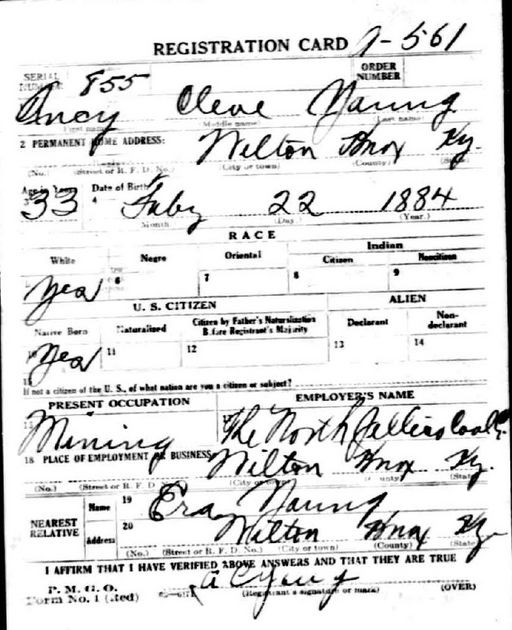 REGISTRATION CARD
SERIAL NUMBER 855 ORDER NUMBER
Cleve Young
First name Middle name Last name
2 PERMANENT HOME ADDRESS: Wilton Knox Ky.
(No.) (Street or R. F. D. No.) (City or town) (County) (State)
Age in Years Date of Birth
33 4 Feby 22 1884
Month (Day.) (Year.)
RACE
White Negro Oriental Indian
Citizen Noncitizen
Yes 6 7 8 9
U. S. CITIZEN ALIEN
Native Born Naturalized Citizen by Father's Naturalization Before Registrant's Majority Declarant Non-declarant
10 Yes 11 12 13 14
15
If not a citizen of the U. S., of what nation are you a citizen or subject?
PRESENT OCCUPATION EMPLOYER'S NAME
Mining The North Jellico Coal Co.
18 PLACE OF EMPLOYMENT OR BUSINESS Wilton Knox Ky.
(No.) (Street or R. F. D. No.) (City or town) (County) (State)
NEAREST RELATIVE
Name 19 Young
Address 20 Wilton Knox Ky.
(No.) (Street or R. F. D. No.) (City or town) (County) (State)
I AFFIRM THAT I HAVE VERIFIED ABOVE ANSWERS AND THAT THEY ARE TRUE
P. M. G. O.
Form No. 1 (Red) A C Young
(Registrant's signature or mark) (OVER)